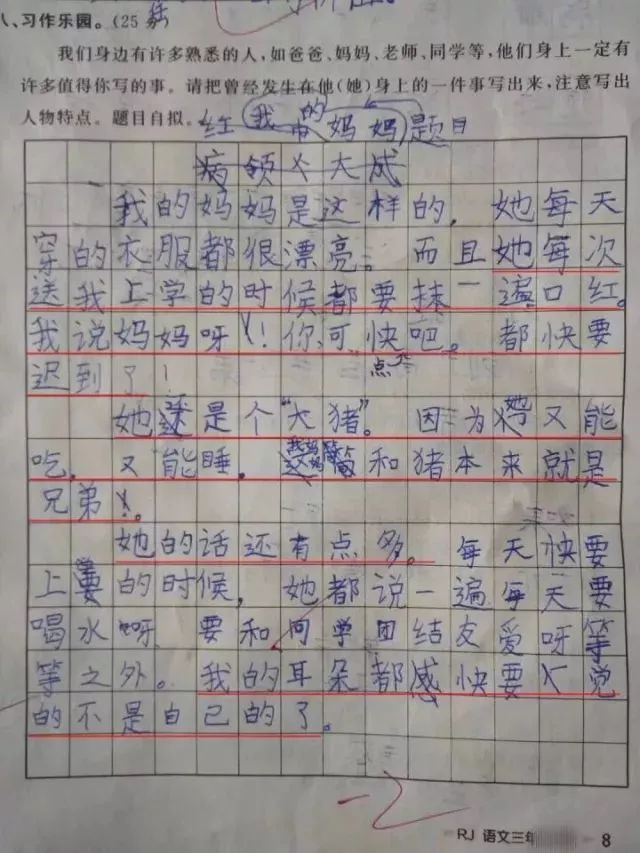 八、习作乐园。(25分)
我们身边有许多熟悉的人,如爸爸、妈妈、老师、同学等,他们身上一定有
许多值得你写的事。请把曾经发生在他(她)身上的一件事写出来,注意写出
人物特点。题目自拟。
我的妈妈 题目
我的妈妈是这样的,她每天
穿的衣服都很漂亮。而且她每次
送我上学的时候都要抹一遍口红。
我说妈妈呀!你可快点吧。都快要
迟到了!
她还是个“大猪”。因为她又能
吃,又能睡,我妈妈和猪本来就是
兄弟。
她的话还有点多。每天快要
上学的时候,她都说一遍每天要
喝水呀 要和同学团结友爱呀等
等之外。我的耳朵都感快要 觉
的不是自己的了。
RJ 语文三年
8